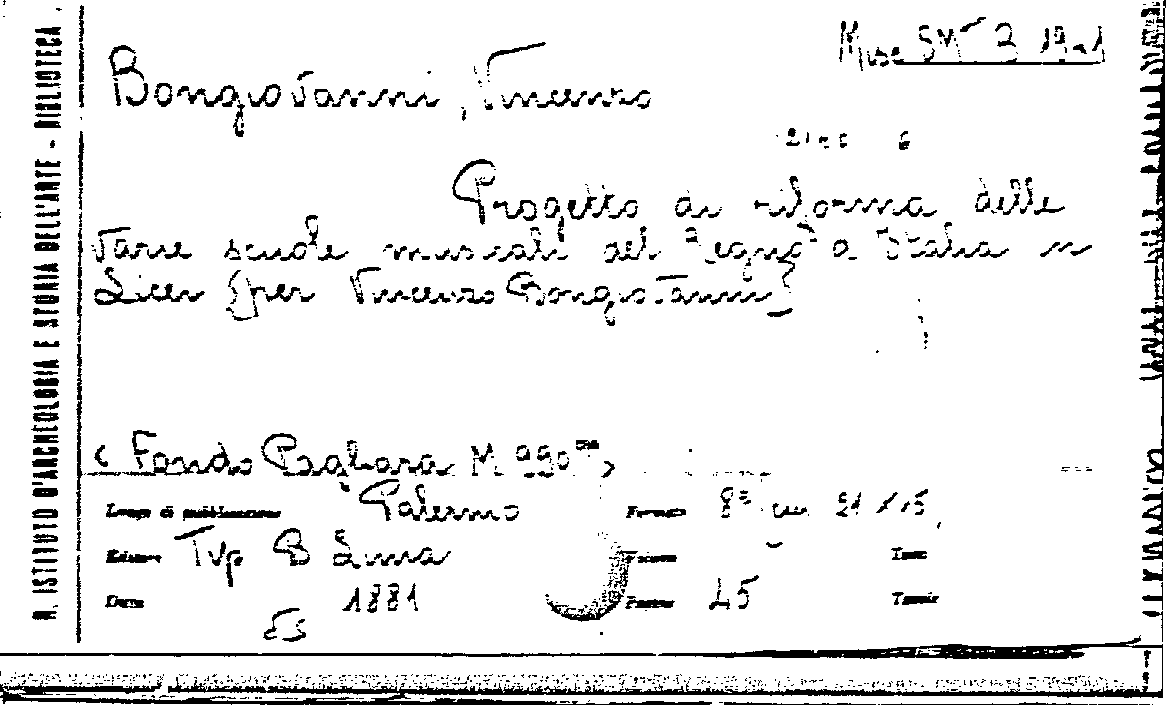 R. ISTITUTO D'ARCHEOLOGIA E STORIA DELL'ARTE - BIBLIOTECA
Misc SM B 19
Bongiovanni, Vincenzo
Progetto di riforma delle
varie scuole musicali del Regno d'Italia in
Licei [per Vincenzo Bongiovanni]
(Fondo Pagliara M 990)
Luogo di pubblicazione Palermo Formato 8° cm 21 x 15
Editore Typ B Lima Volume Tavv.
Data 1881 Pagine 45 Tavole